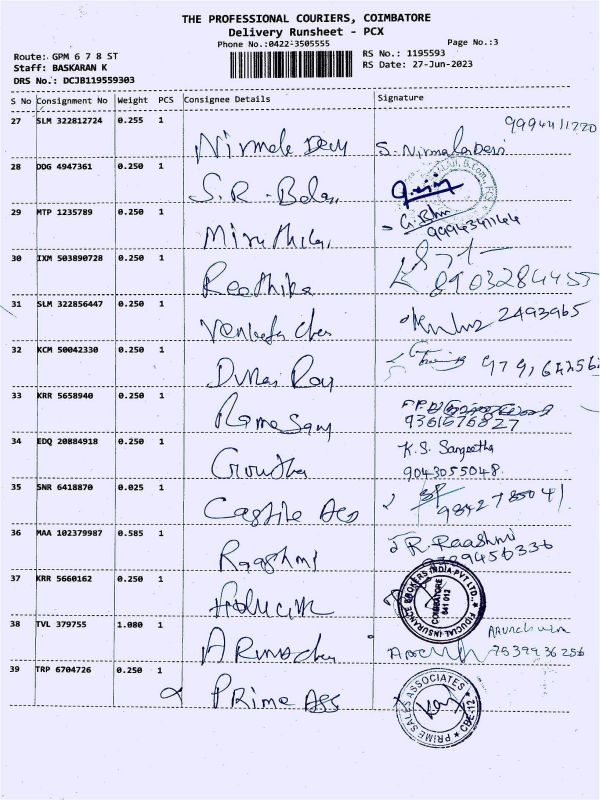 THE PROFESSIONAL COURIERS, COIMBATORE
Delivery Runsheet - PCX
Phone No.:0422-3505555
Page No.:3
Route: GPM 6 7 8 ST
Staff: BASKARAN K
DRS No.: DCJB119559303
RS No.: 1195593
RS Date: 27-Jun-2023
S No Consignment No Weight PCS Consignee Details Signature
27 SLM 322812724 0.255 1 Nirmala Devi S. Nirmala Devi 9994411220
28 DDG 4947361 0.250 1 S.R. Balan
29 MTP 1235789 0.250 1 Miruthila 9994341144
30 IXM 503890728 0.250 1 Reethika 8903284455
31 SLM 322856447 0.250 1 2493965
32 KCM 50042330 0.250 1 Durai Raj
33 KRR 5658940 0.250 1 Rama Samy 9361676827
34 EDQ 20884918 0.250 1 Goutha K.S. Sangeetha
9043055048
35 SNR 6418870 0.025 1 Castile Ass 9842785041
36 MAA 102379987 0.585 1 Raashmi R. Raashmi
37 KRR 5660162 0.250 1 FIDUCIAL INSURANCE BROKERS INDIA PVT LTD. COIMBATORE 641 012
38 TVL 379755 1.080 1 Arunachalam
7539936256
39 TRP 6704726 0.250 1 Prime Ass PRIME SALES ASSOCIATES CBE-12